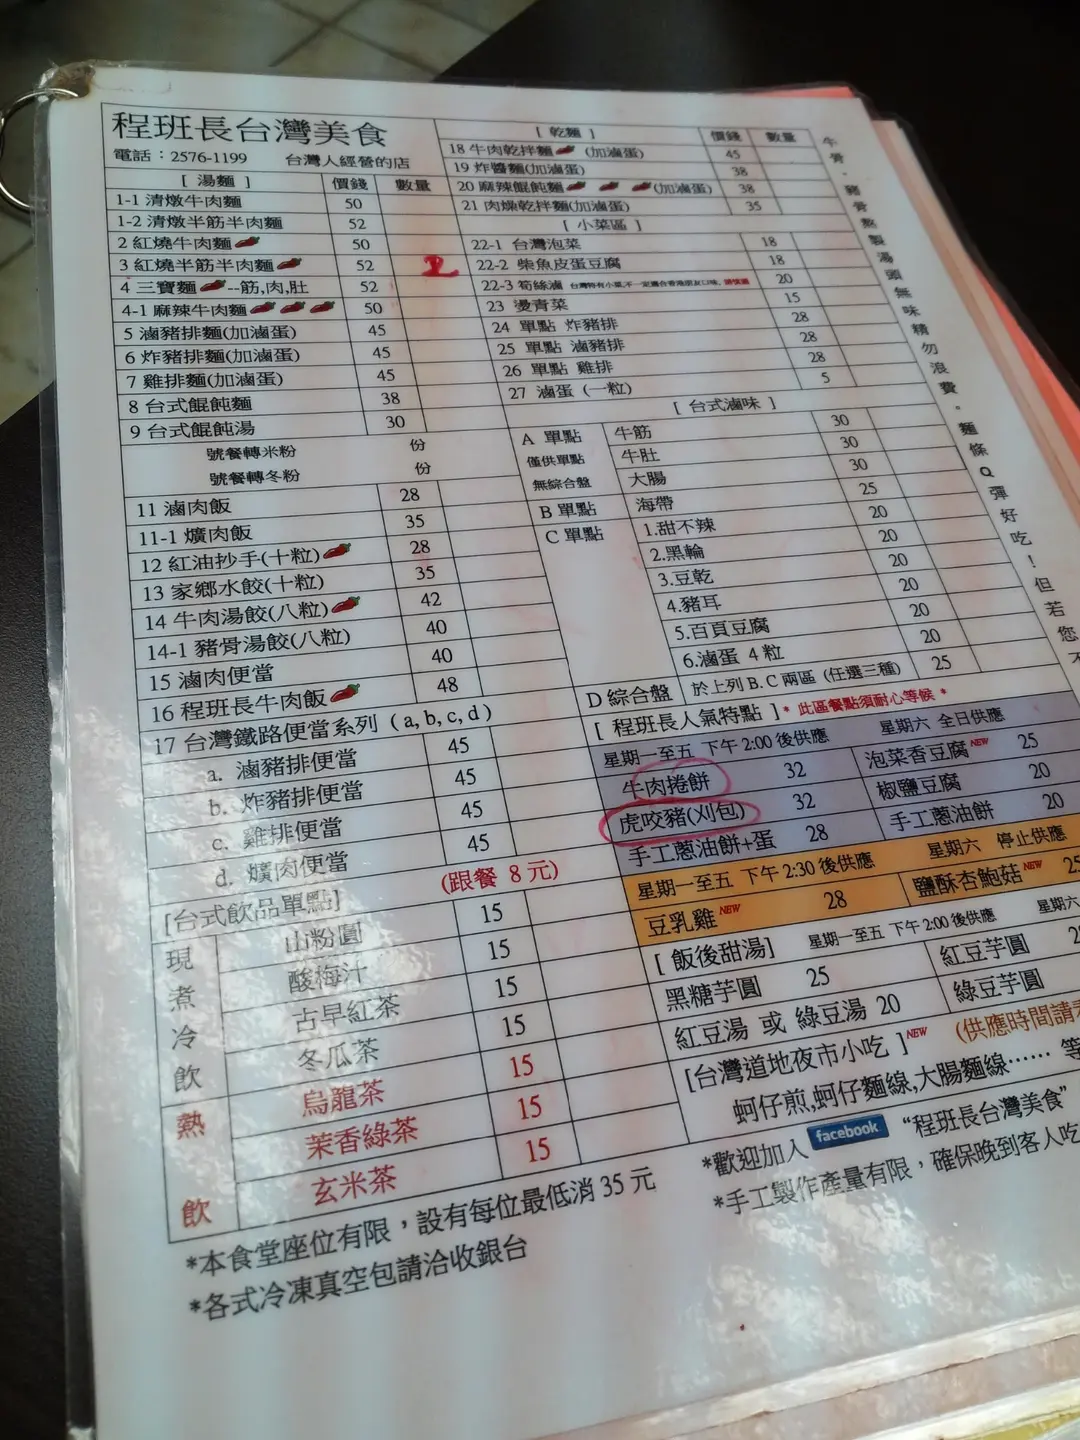 程班長台灣美食
電話：2576-1199 台灣人經營的店
[ 湯麵 ] 價錢 數量
1-1 清燉牛肉麵 50
1-2 清燉半筋半肉麵 52
2 紅燒牛肉麵 50
3 紅燒半筋半肉麵 52
4 三寶麵 --筋,肉,肚 52
4-1 麻辣牛肉麵 50
5 滷豬排麵(加滷蛋) 45
6 炸豬排麵(加滷蛋) 45
7 雞排麵(加滷蛋) 45
8 台式餛飩麵 38
9 台式餛飩湯 30
號餐轉米粉 份
號餐轉冬粉 份
11 滷肉飯 28
11-1 爌肉飯 35
12 紅油抄手(十粒) 28
13 家鄉水餃(十粒) 35
14 牛肉湯餃(八粒) 42
14-1 豬骨湯餃(八粒) 40
15 滷肉便當 40
16 程班長牛肉飯 48
17 台灣鐵路便當系列 (a, b, c, d)
a. 滷豬排便當 45
b. 炸豬排便當 45
c. 雞排便當 45
d. 爌肉便當 45
(跟餐 8 元)
[台式飲品單點]
現煮冷飲
山粉圓 15
酸梅汁 15
古早紅茶 15
冬瓜茶 15
熱飲
烏龍茶 15
茉香綠茶 15
玄米茶 15
*本食堂座位有限，設有每位最低消 35 元
*各式冷凍真空包請洽收銀台
[ 乾麵 ] 價錢 數量
18 牛肉乾拌麵 (加滷蛋) 45
19 炸醬麵(加滷蛋) 38
20 麻辣餛飩麵 (加滷蛋) 38
21 肉燥乾拌麵(加滷蛋) 35
[ 小菜區 ]
22-1 台灣泡菜 18
22-2 柴魚皮蛋豆腐 18
22-3 筍絲滷 台灣特有小菜,不一定適合香港朋友口味, 20
23 燙青菜 15
24 單點 炸豬排 28
25 單點 滷豬排 28
26 單點 雞排 28
27 滷蛋 (一粒) 5
[ 台式滷味 ]
A 單點 牛筋 30
僅供單點 牛肚 30
無綜合盤 大腸 30
B 單點 海帶 25
C 單點 1.甜不辣 20
2.黑輪 20
3.豆乾 20
4.豬耳 20
5.百頁豆腐 20
6.滷蛋 4 粒 20
D 綜合盤 於上列 B. C 兩區 (任選三種) 25
[ 程班長人氣特點 ] * 此區餐點須耐心等候 *
星期一至五 下午 2:00 後供應 星期六 全日供應
牛肉捲餅 32 泡菜香豆腐 NEW 25
虎咬豬(刈包) 32 椒鹽豆腐 20
手工蔥油餅+蛋 28 手工蔥油餅 20
星期一至五 下午 2:30 後供應 星期六 停止供應
豆乳雞 NEW 28 鹽酥杏鮑菇 NEW 25
[ 飯後甜湯] 星期一至五 下午 2:00 後供應 星期六
黑糖芋圓 25 紅豆芋圓
紅豆湯 或 綠豆湯 20 綠豆芋圓
[台灣道地夜市小吃 ] NEW (供應時間請
蚵仔煎,蚵仔麵線,大腸麵線…… 等
*歡迎加入 facebook “程班長台灣美食”
*手工製作產量有限，確保晚到客人吃
牛骨、豬骨熬製湯頭無味精勿浪費．麵條Q彈好吃！但若您